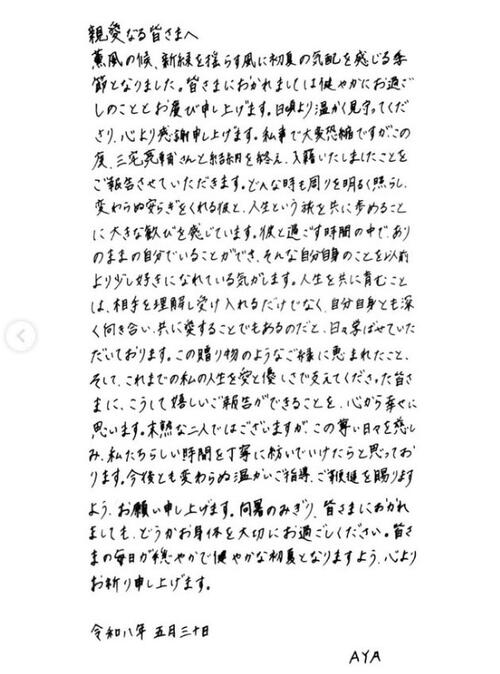 親愛なる皆さまへ
薫風の候、新緑を揺らす風に初夏の気配を感じる季
節となりました。皆さまにおかれましては健やかにお過ご
しのこととお慶び申し上げます。日頃より温かく見守ってくだ
さり、心より感謝申し上げます。私事で大変恐縮ですがこの
度、三宅亮輔さんと結納を終え、入籍いたしましたことを
ご報告させていただきます。どんな時も周りを明るく照らし、
変わらぬ安らぎをくれる彼と、人生という旅を共に歩めること
に大きな歓びを感じています。彼と過ごす時間の中で、あり
のままの自分でいることができ、そんな自分自身のことを以前
より少し好きになれている気がします。人生を共に育むこと
は、相手を理解し受け入れるだけでなく、自分自身とも深
く向き合い、共に愛することでもあるのだと、日々学ばせていた
だいております。この贈り物のようなご縁に恵まれたこと、
そして、これまでの私の人生を愛と優しさで支えてくださった皆さ
まに、こうして嬉しいご報告ができることを、心から幸せに
思います。未熟な二人ではございますが、この尊い日々を慈し
み、私たちらしい時間を丁寧に紡いでいけたらと思ってお
ります。今後とも変わらぬ温かいご指導、ご鞭撻を賜ります
よう、お願い申し上げます。向暑のみぎり、皆さまにおかれ
ましても、どうかお身体を大切にお過ごしください。皆さ
まの毎日が穏やかで健やかな初夏となりますよう、心より
お祈り申し上げます。
令和八年 五月三十日
AYA